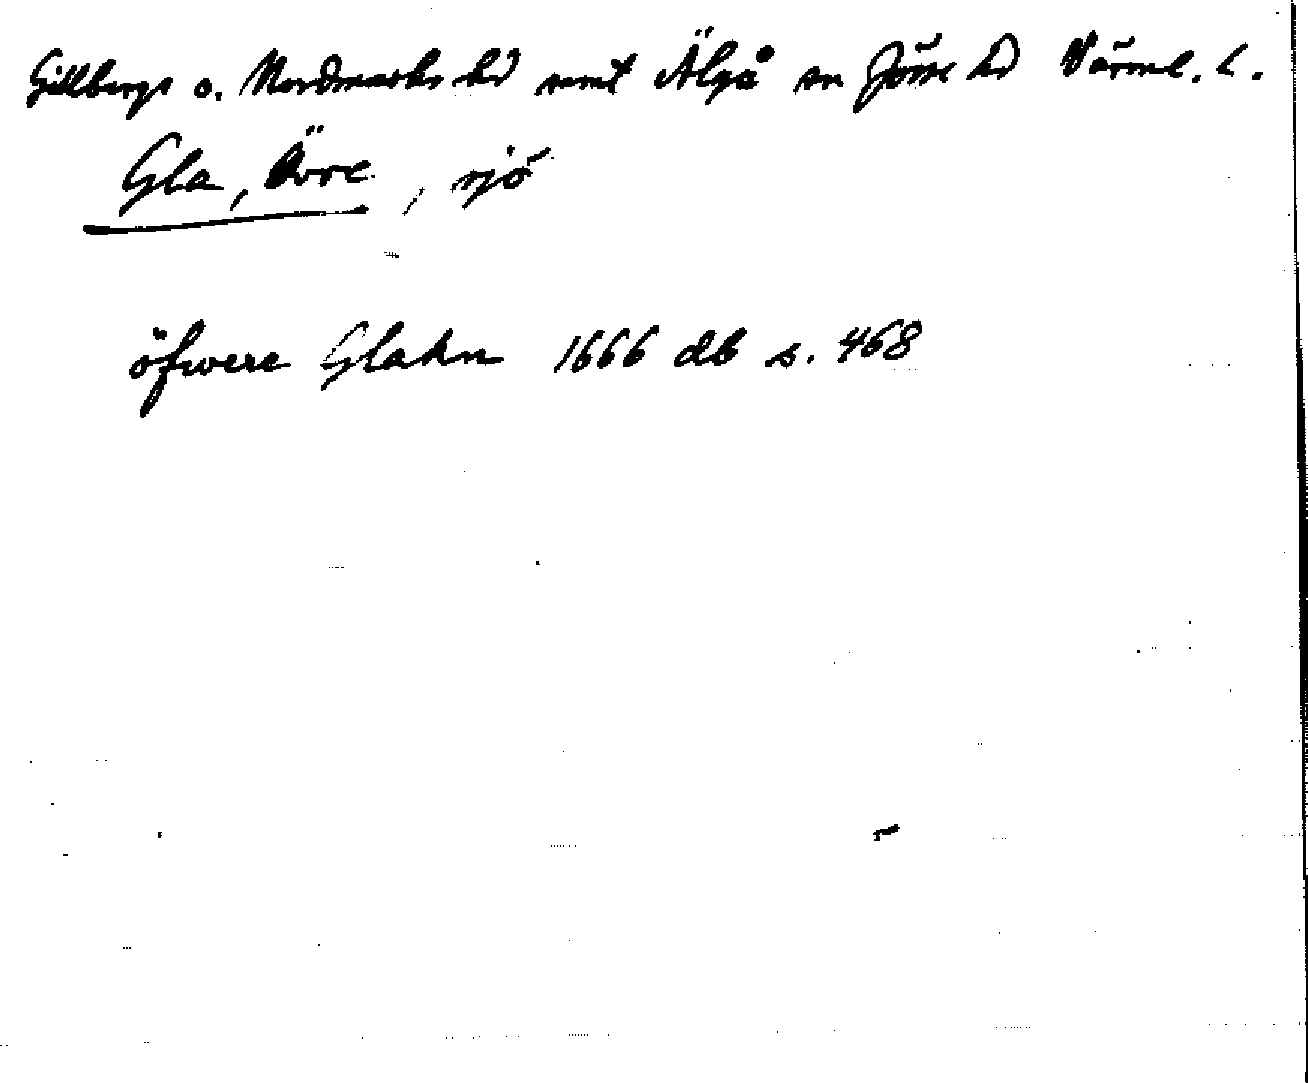 Gillbergs o. Nordmarks hd samt Älgå sn Jösse hd Värml. l.
Gla, Övre, sjö
öfwere Glahn 1666 db s. 468